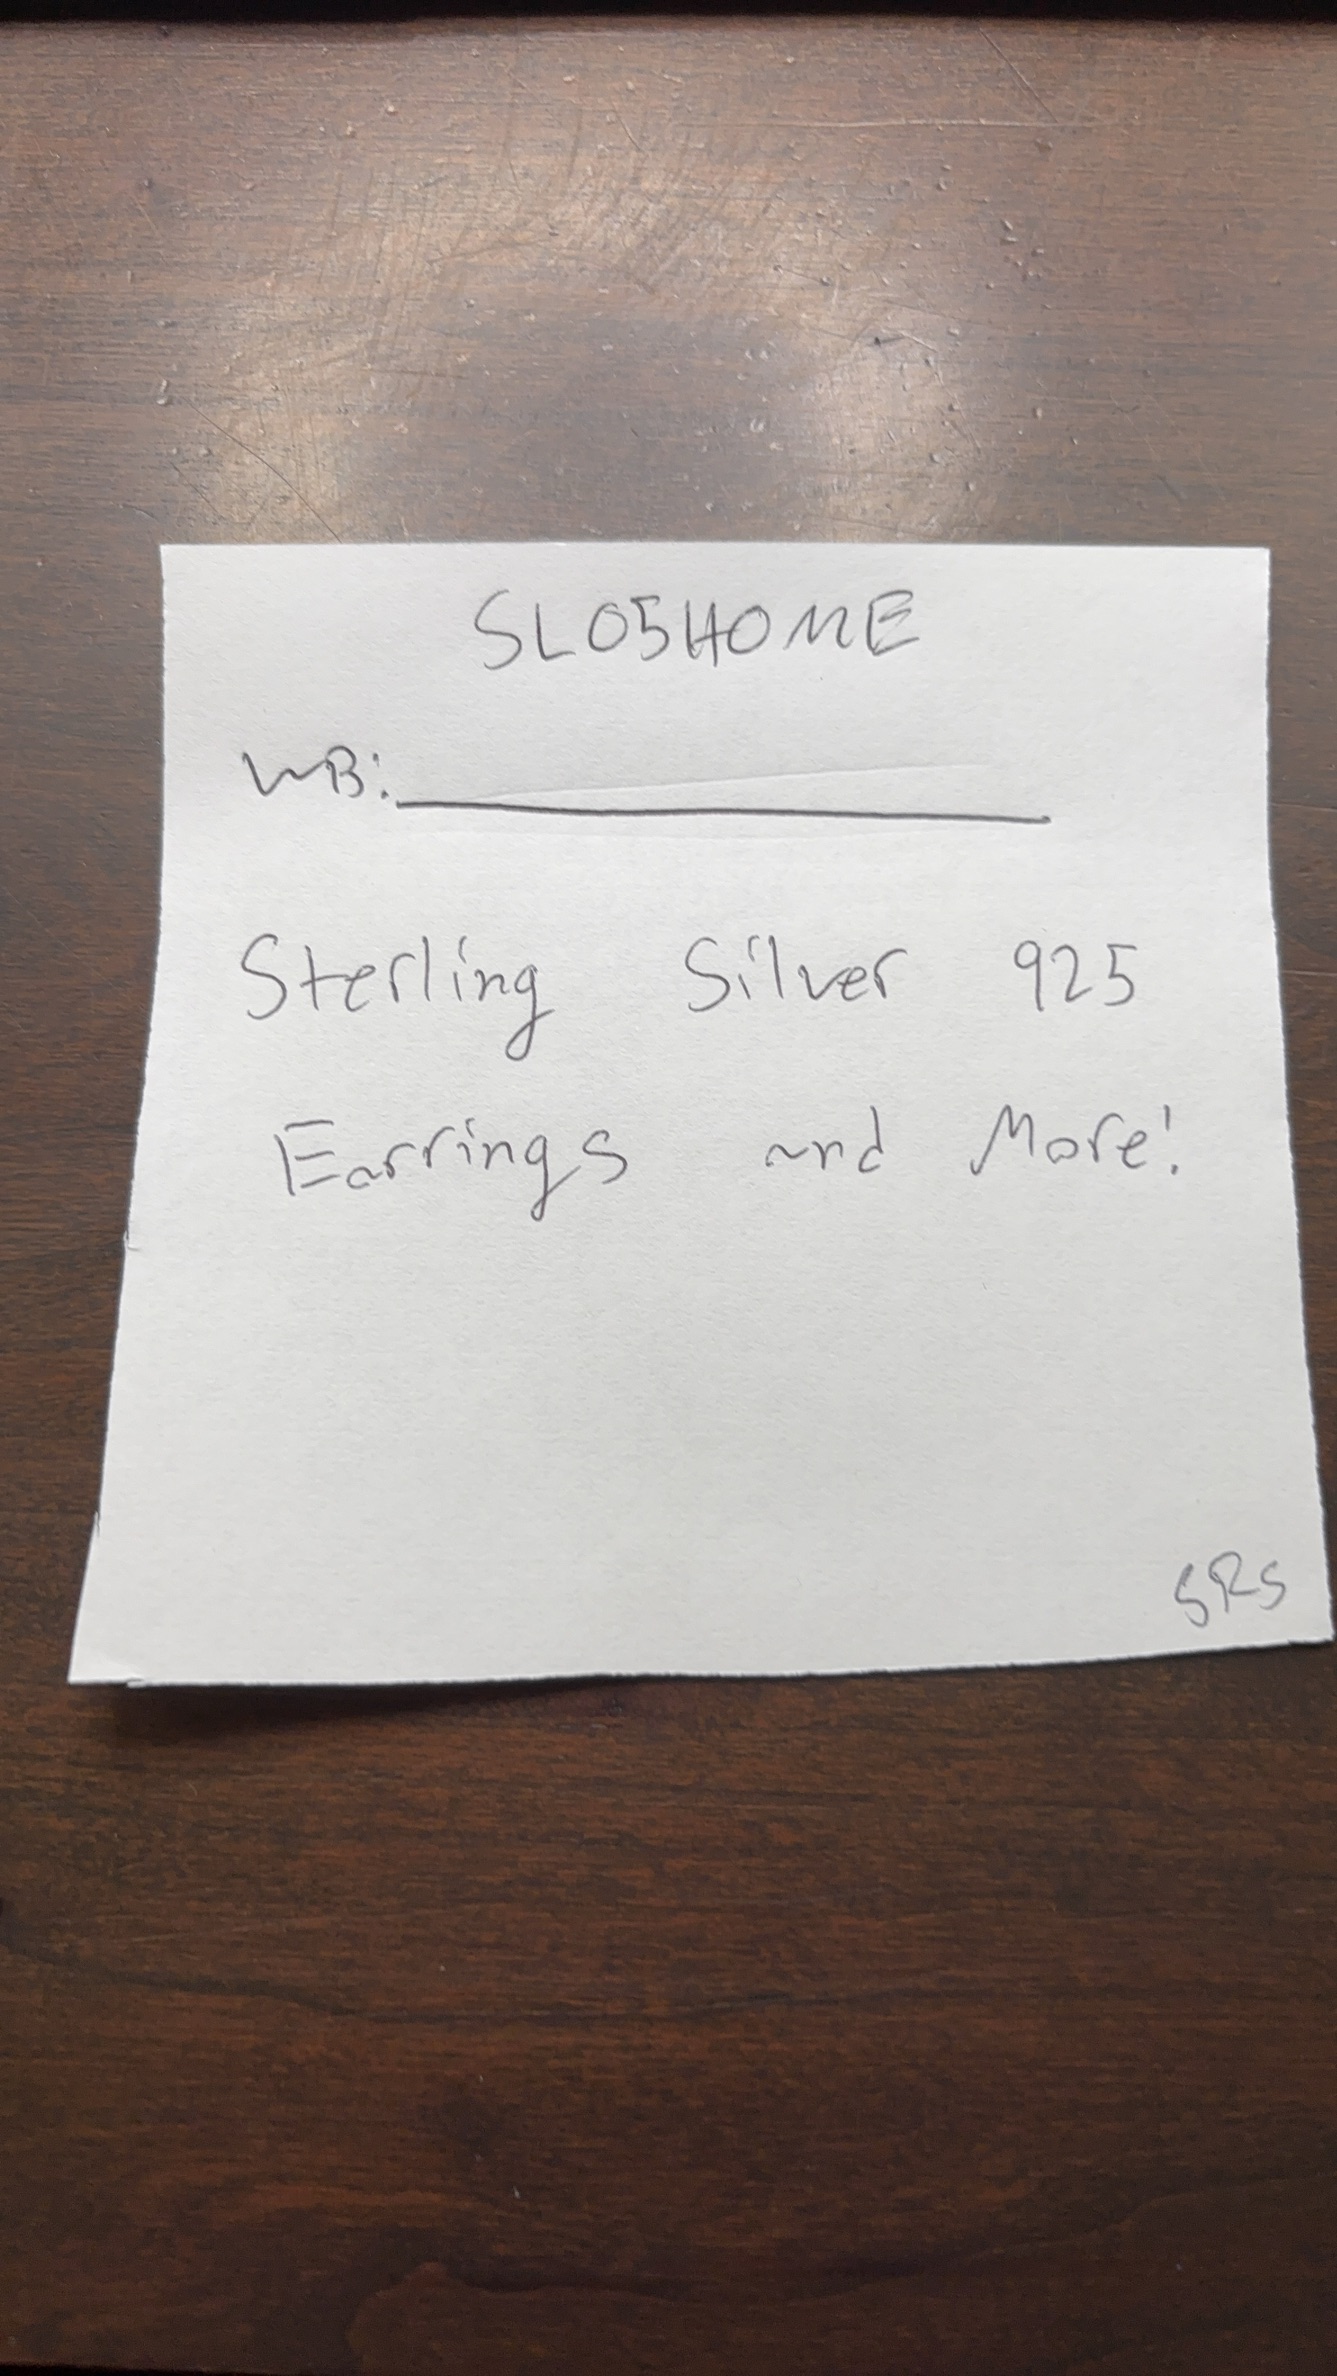 SL05HOME
WB:
Sterling Silver 925
Earrings and More!
SRS